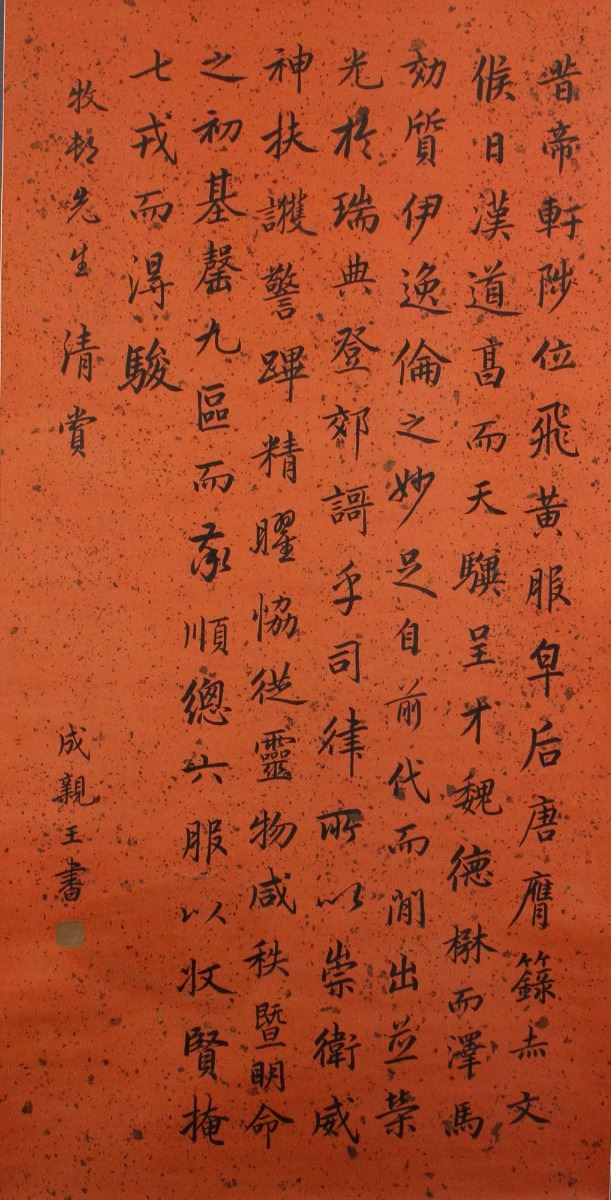 昔帝軒陟位飛黃服皁后唐膺籙赤文
候日漢道髙而天驥呈才魏德楙而澤馬
効質伊逸倫之妙足自前代而閒出並榮
光於瑞典登郊謌乎司律所以崇衛威
神扶護警蹕精曜恊從靈物咸秩暨明命
之初基罄九區而率順總六服以收賢掩
七戎而得駿
牧邨先生清賞
成親王書